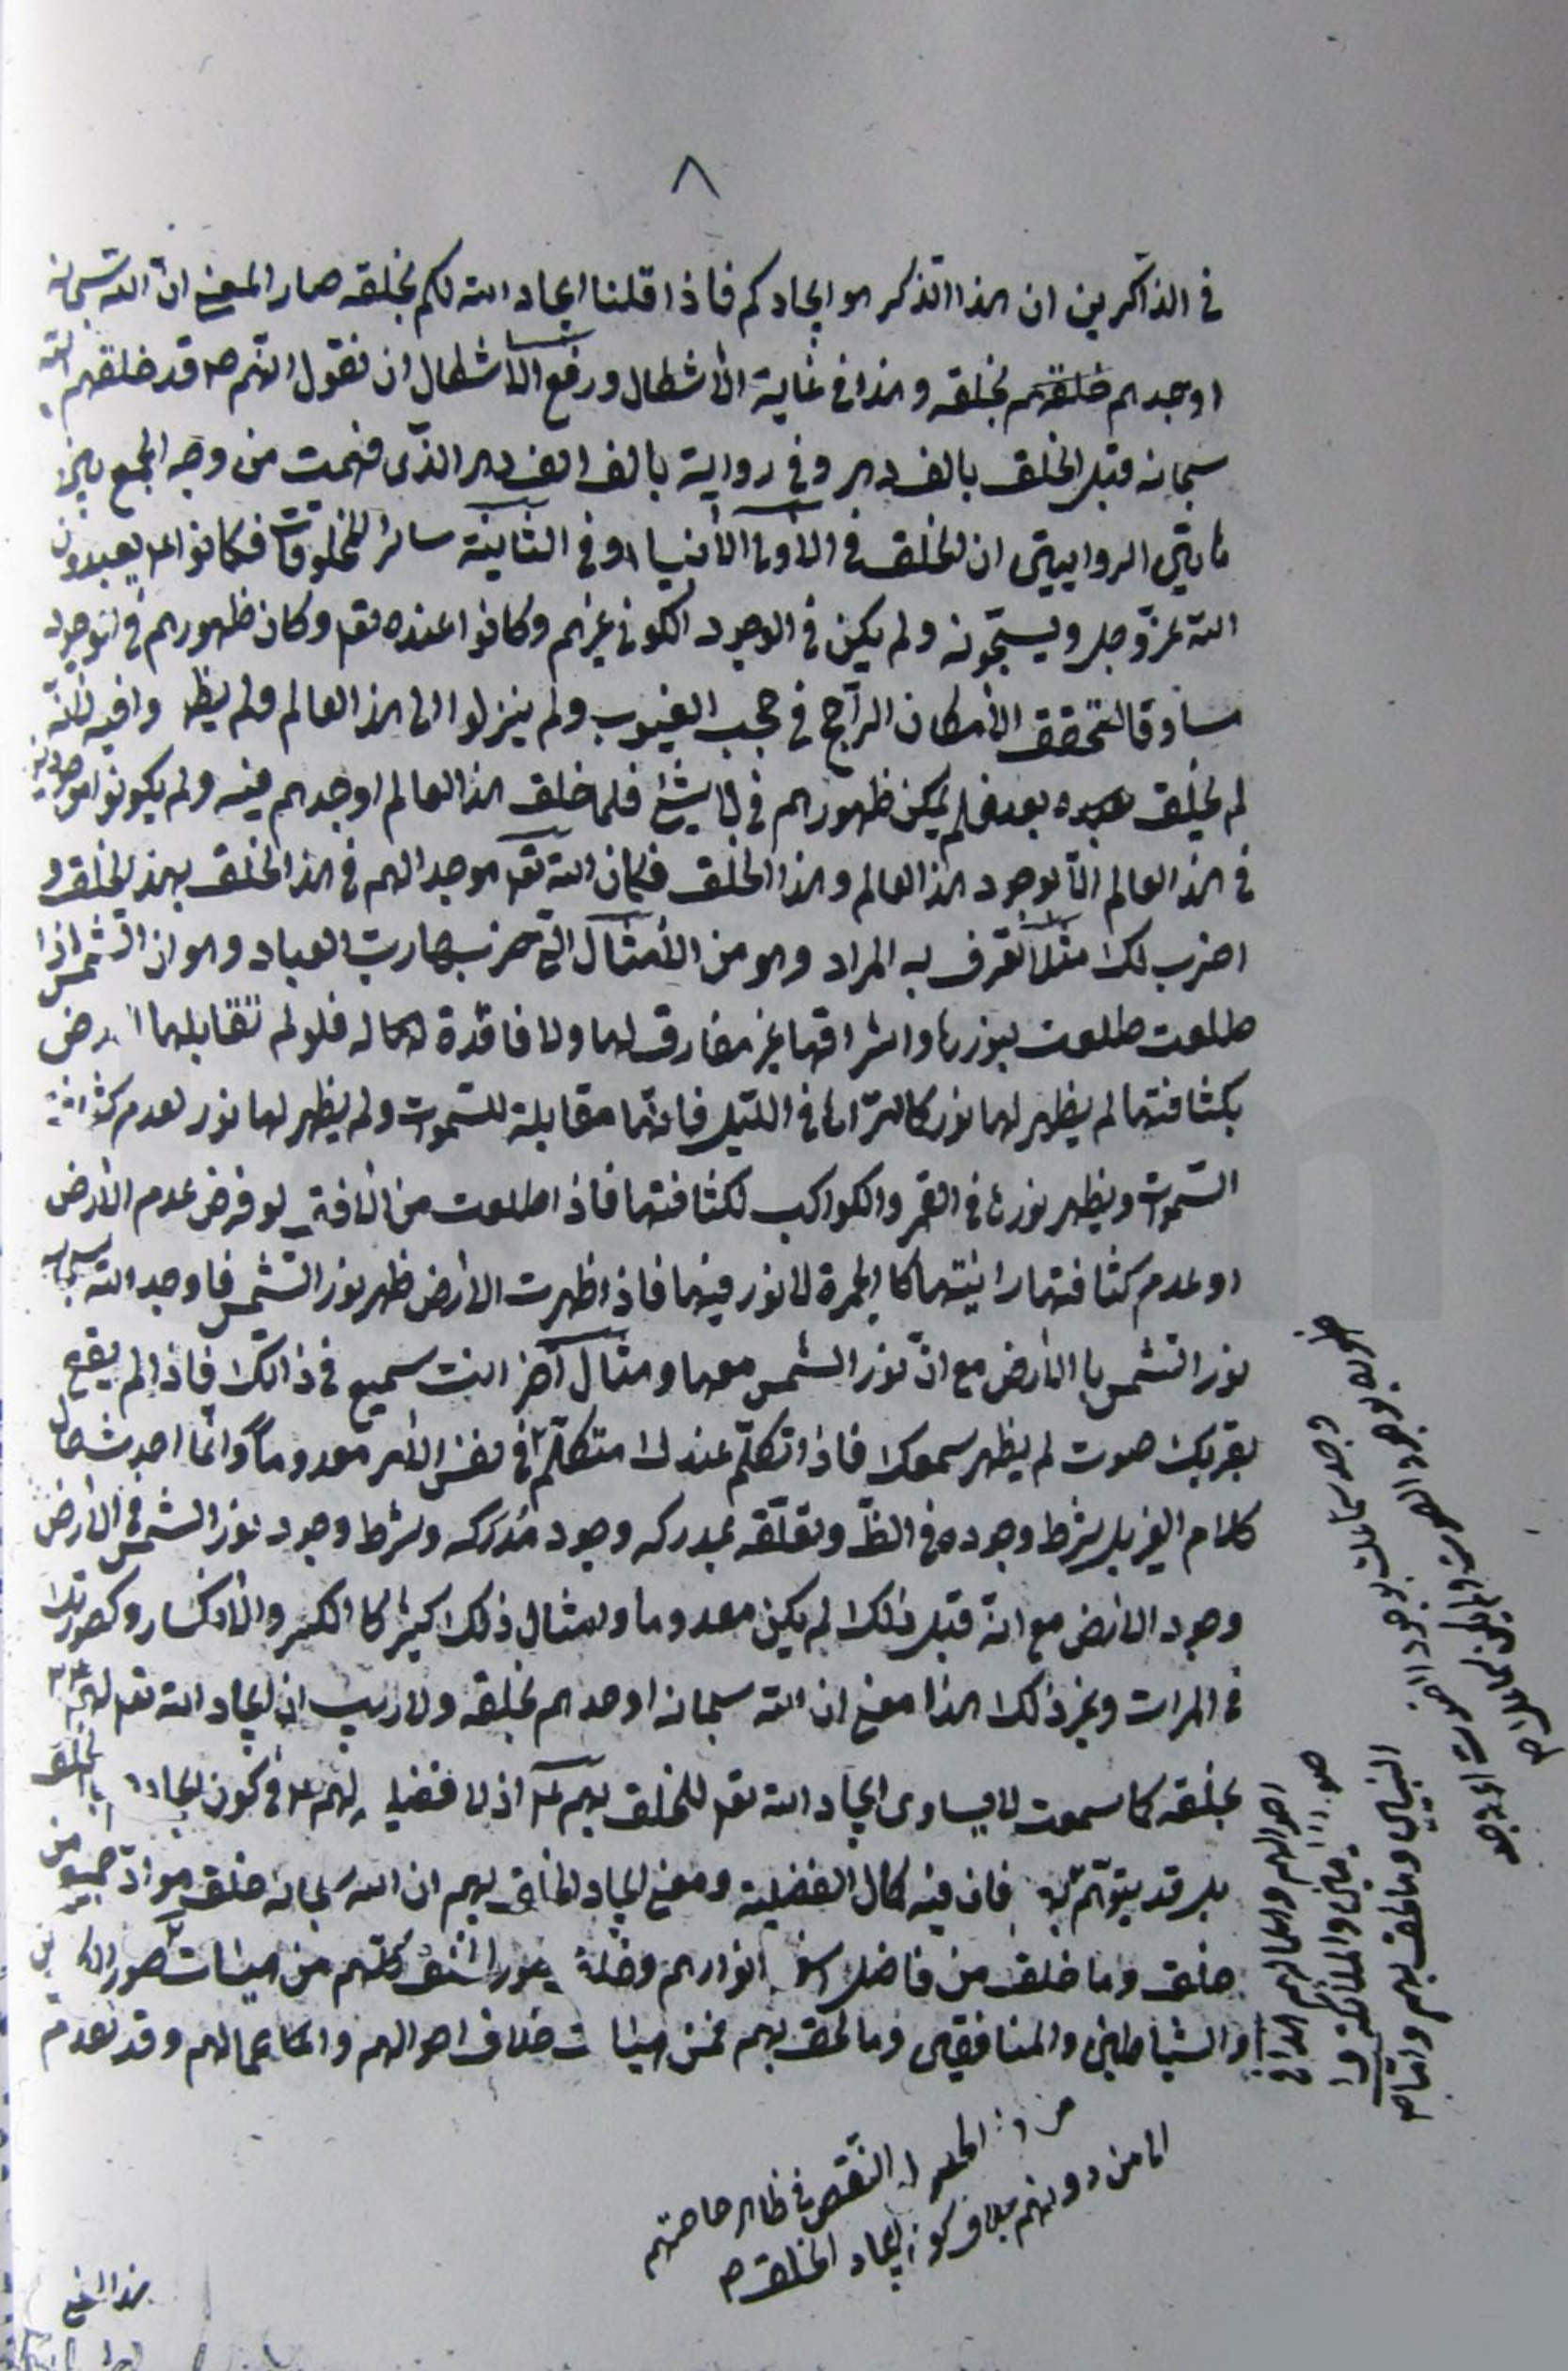 ٨
في الذاكرين ان هذا الذكر هو ايجادكم فاذا قلنا ايجاد الله لكم بخلقه صار المعنى ان الله سبحانه
اوجدهم خلقهم بخلقه وهذا في غاية الأشكال ورفع الأشكال ان نقول انهم ص قد خلقهم الله
سبحانه قبل الخلق بالف دهر وفي رواية بالف الف دهر الذي فهمت من وجه الجمع بين
هاتين الروايتين ان الخلق في الأولى الأنبياء وفي الثانية سائر المخلوقات فكانوا ع يعبدون
الله عزوجل ويسبحونه ولم يكن في الوجود الكوني غيرهم وكانوا عنده تعالى وكان ظهورهم في الوجود
مساوقا لتحقق الأمكان الراجح في حجب الغيوب ولم ينزلوا الى هذا العالم ولم يظهروا فيه لأنه
لم يخلق بعد فلم يمكن ظهورهم في لا شيء فلما خلق هذا العالم اوجدهم فيه ولم يكونوا موجودين
في هذا العالم الا بوجود هذا العالم وهذا الخلق فكان الله تعالى موجدا لهم في هذا الخلق بهذا الخلق و
اضرب لك مثلا تعرف به المراد وهو من الأمثال التي ضربها رب العباد وهو ان الشمس اذا
طلعت طلعت بنورها واشراقها غير مفارق لها ولا فاقدة لكماله فلو لم تقابلها الارض
بكثافتها لم يظهر لها نور كما تراها في الليل فانها مقابلة للسموات ولم يظهر لها نور لعدم كثافة
السموات ويظهر نورها في القمر والكواكب لكثافتها فاذا طلعت من الافق لو فرض عدم الأرض
او عدم كثافتها رايتها كالجمرة لا نور فيها فاذا ظهرت الارض ظهر نور الشمس فاوجد الله سبحانه
نور الشمس بالأرض مع ان نور الشمس معها ومثال آخر انت سميع في ذاتك فاذا لم يقع
بقربك صوت لم يظهر سمعك فاذا تكلم عندك متكلم في نفس الأمر معدوما وانما احدث
كلام الغير بل شرط وجوده في الظ وتعلقه بمدركه وجود مدركه وشرط وجود نور الشمس في الأرض
وجود الأرض مع انه قبل ذلك لم يكن معدوما وامثال ذلك كثير كالكسر والأنكسار وكصورتك
في المرات وغير ذلك هذا معنى ان الله سبحانه اوجدهم بخلقه ولا ريب ان ايجاد الله تعالى لهم
بخلقه كما سمعت لا يساوي ايجاد الله تعالى للخلق بهم ع اذ لا فضيلة لهم ع في كون ايجادهم بالخلق
بل قد يتوهم فان فيه كمال الفضيلة ومعنى ايجاد الخلق بهم ان الله سبحانه خلق مواد جميع من
خلق وما خلق من فاضل انوارهم وخلق صور من هيئات صور
والشياطين والمنافقين وما لحق بهم فمن هيئات خلاف احوالهم واعمالهم وقد تقدم
وجد سمعك بوجود الصوت
النبيين وما لحق بهم واما ص
والملائكة
احوالهم واعمالهم
النقص في ظاهر حاجتهم
الى من دونهم بخلاف كون ايجاد الخلق ص
هذا المعنى